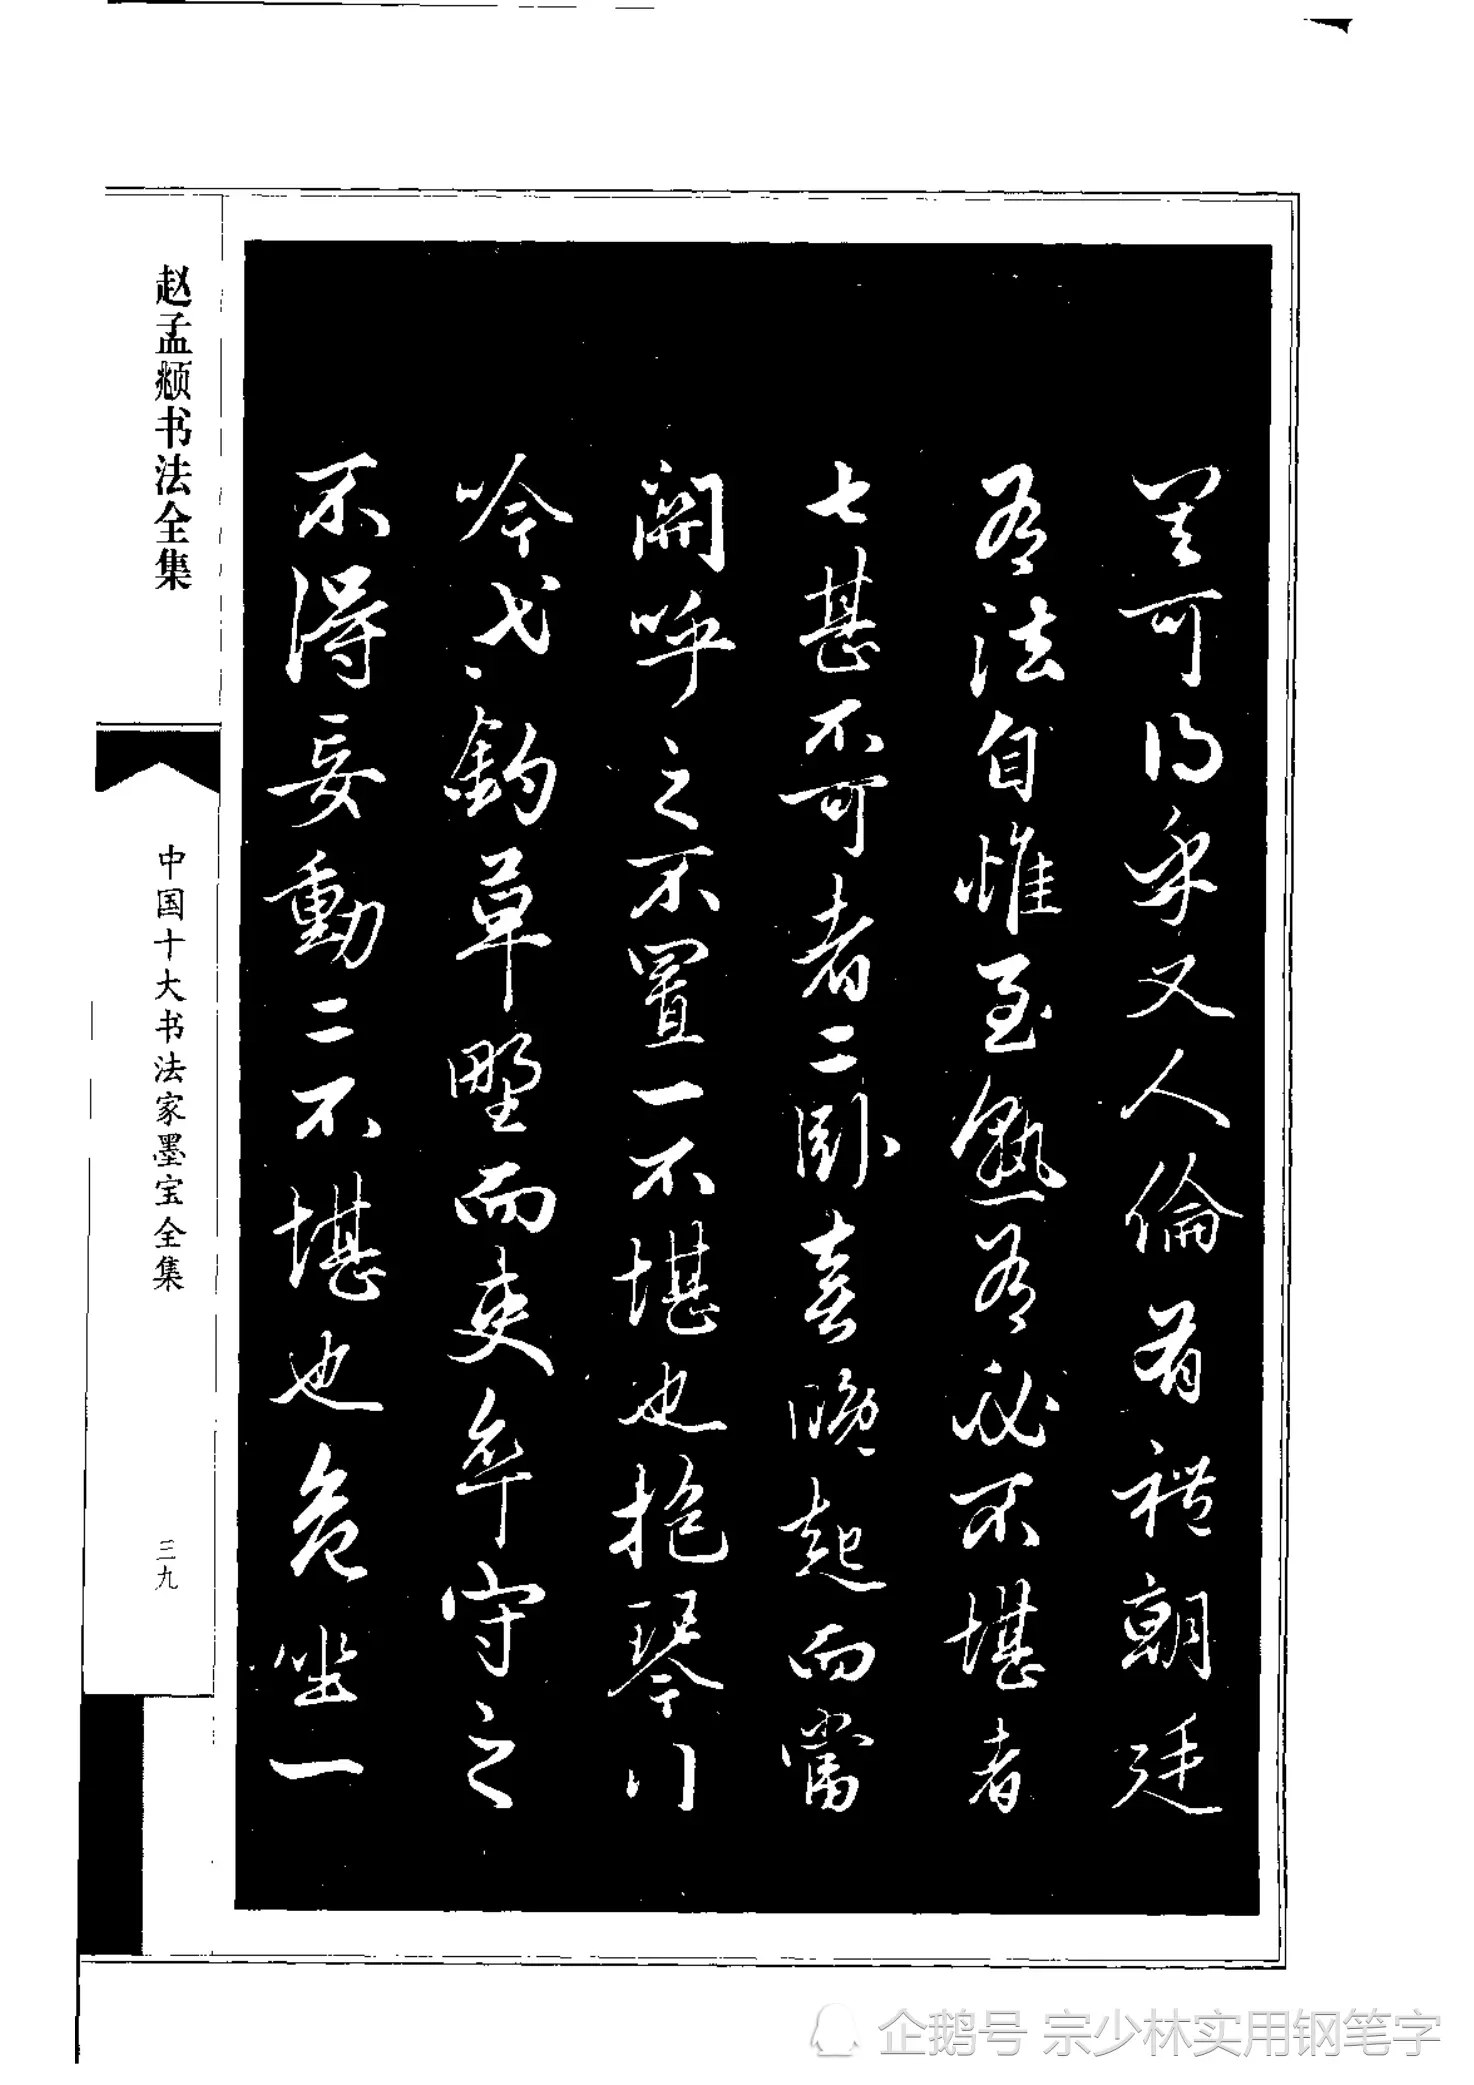 其可得乎又人倫有禮朝廷
有法自惟至熟有必不堪者
七甚不可者二卧喜晚起而當
關呼之不置一不堪也抱琴行
吟弋釣草野而吏卒守之
不得妄動二不堪也危坐一
赵孟頫书法全集
中国十大书法家墨宝全集
三九
企鹅号 宗少林实用钢笔字